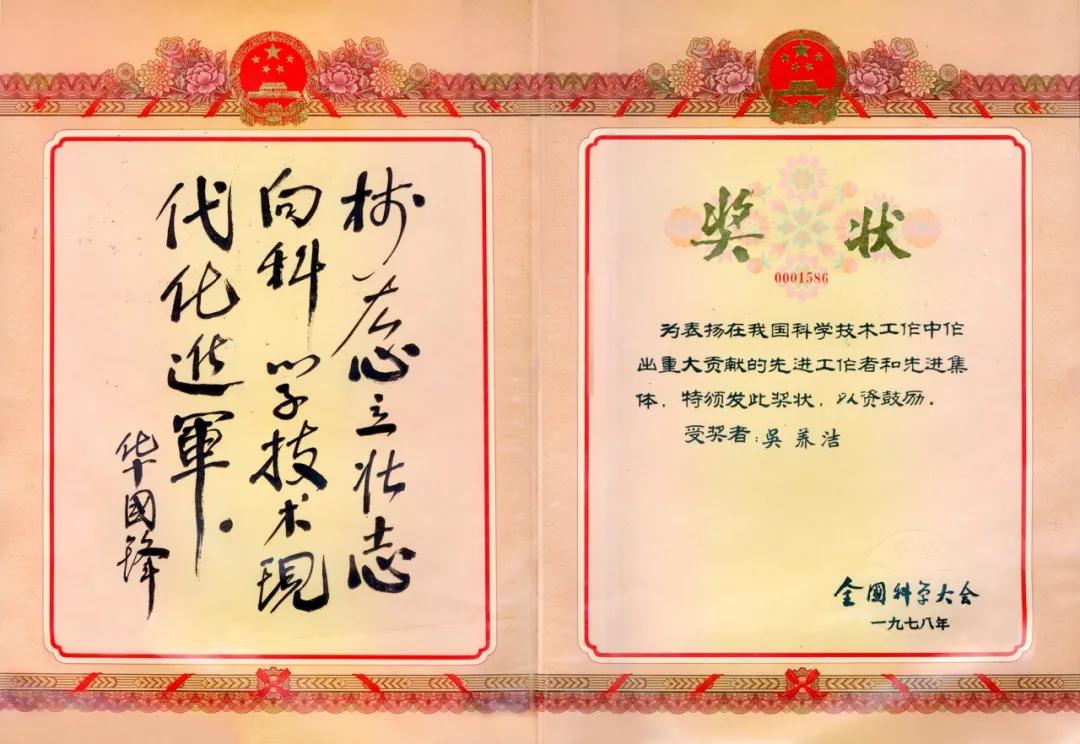 树雄心立壮志
向科学技术現
代化進軍。
华國锋
奖状
0001586
为表扬在我国科学技术工作中作
出重大贡献的先进工作者和先进集
体，特颁发此奖状，以资鼓励。
受奖者：吴养洁
全國科学大会
一九七八年